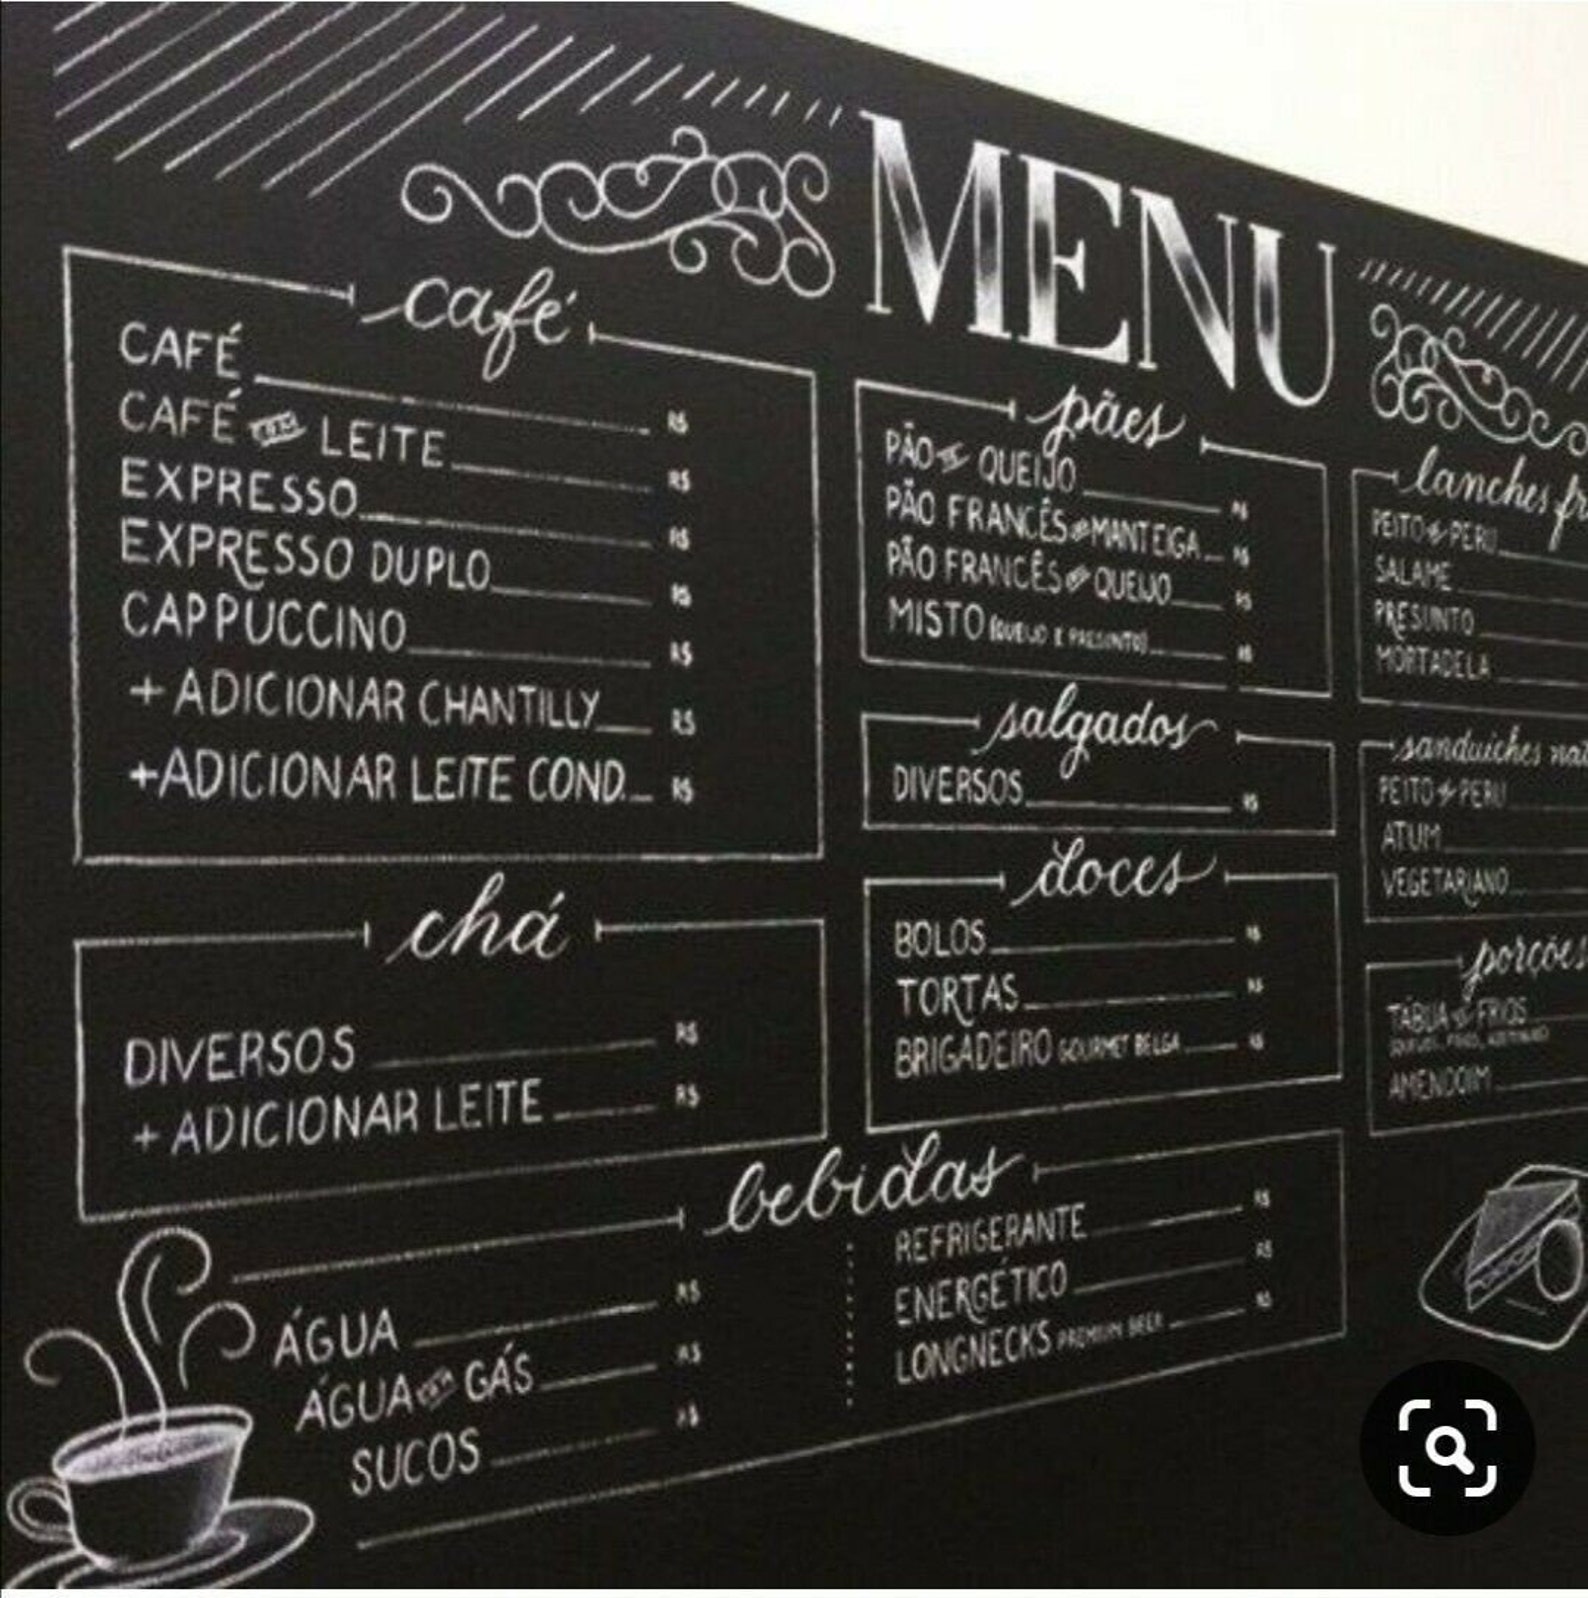 MENU
café
CAFÉ R$
CAFÉ COM LEITE R$
EXPRESSO R$
EXPRESSO DUPLO R$
CAPPUCCINO R$
+ ADICIONAR CHANTILLY R$
+ADICIONAR LEITE COND. R$
chá
DIVERSOS R$
+ ADICIONAR LEITE R$
pães
PÃO DE QUEIJO R$
PÃO FRANCÊS COM MANTEIGA R$
PÃO FRANCÊS COM QUEIJO R$
MISTO (QUEIJO E PRESUNTO) R$
salgados
DIVERSOS R$
doces
BOLOS R$
TORTAS R$
BRIGADEIRO GOURMET BELGA R$
lanches
PEITO DE PERU
SALAME
PRESUNTO
MORTADELA
sanduíches
PEITO DE PERU
ATUM
VEGETARIANO
porções
TÁBUA DE FRIOS
AMENDOIM
bebidas
ÁGUA R$
ÁGUA COM GÁS R$
SUCOS R$
REFRIGERANTE R$
ENERGÉTICO R$
LONGNECKS PREMIUM BEER R$